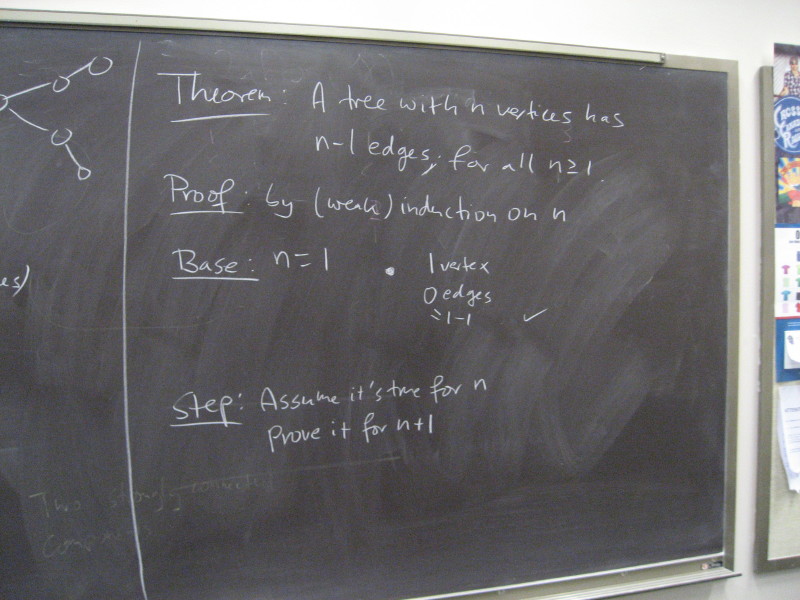 Theorem: A tree with n vertices has
n-1 edges, for all n≥1.
Proof: by (weak) induction on n
Base: n=1
1 vertex
0 edges
=1-1 ✓
es)
Step: Assume it's true for n
Prove it for n+1
Two strongly connected